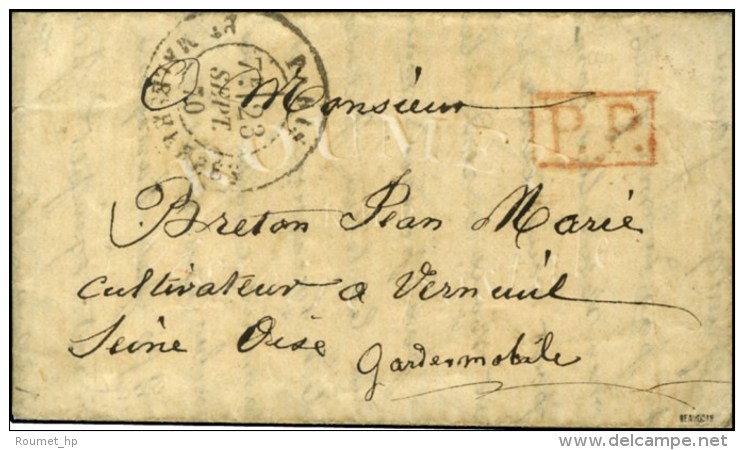 PARIS
7E 23
SEPT.
70
P.P.
ROUMET
A Monsieur
Breton Jean Marie
cultivateur a Verneuil
Seine Oise gardesmobile
Roumet_hp
delcampe.net